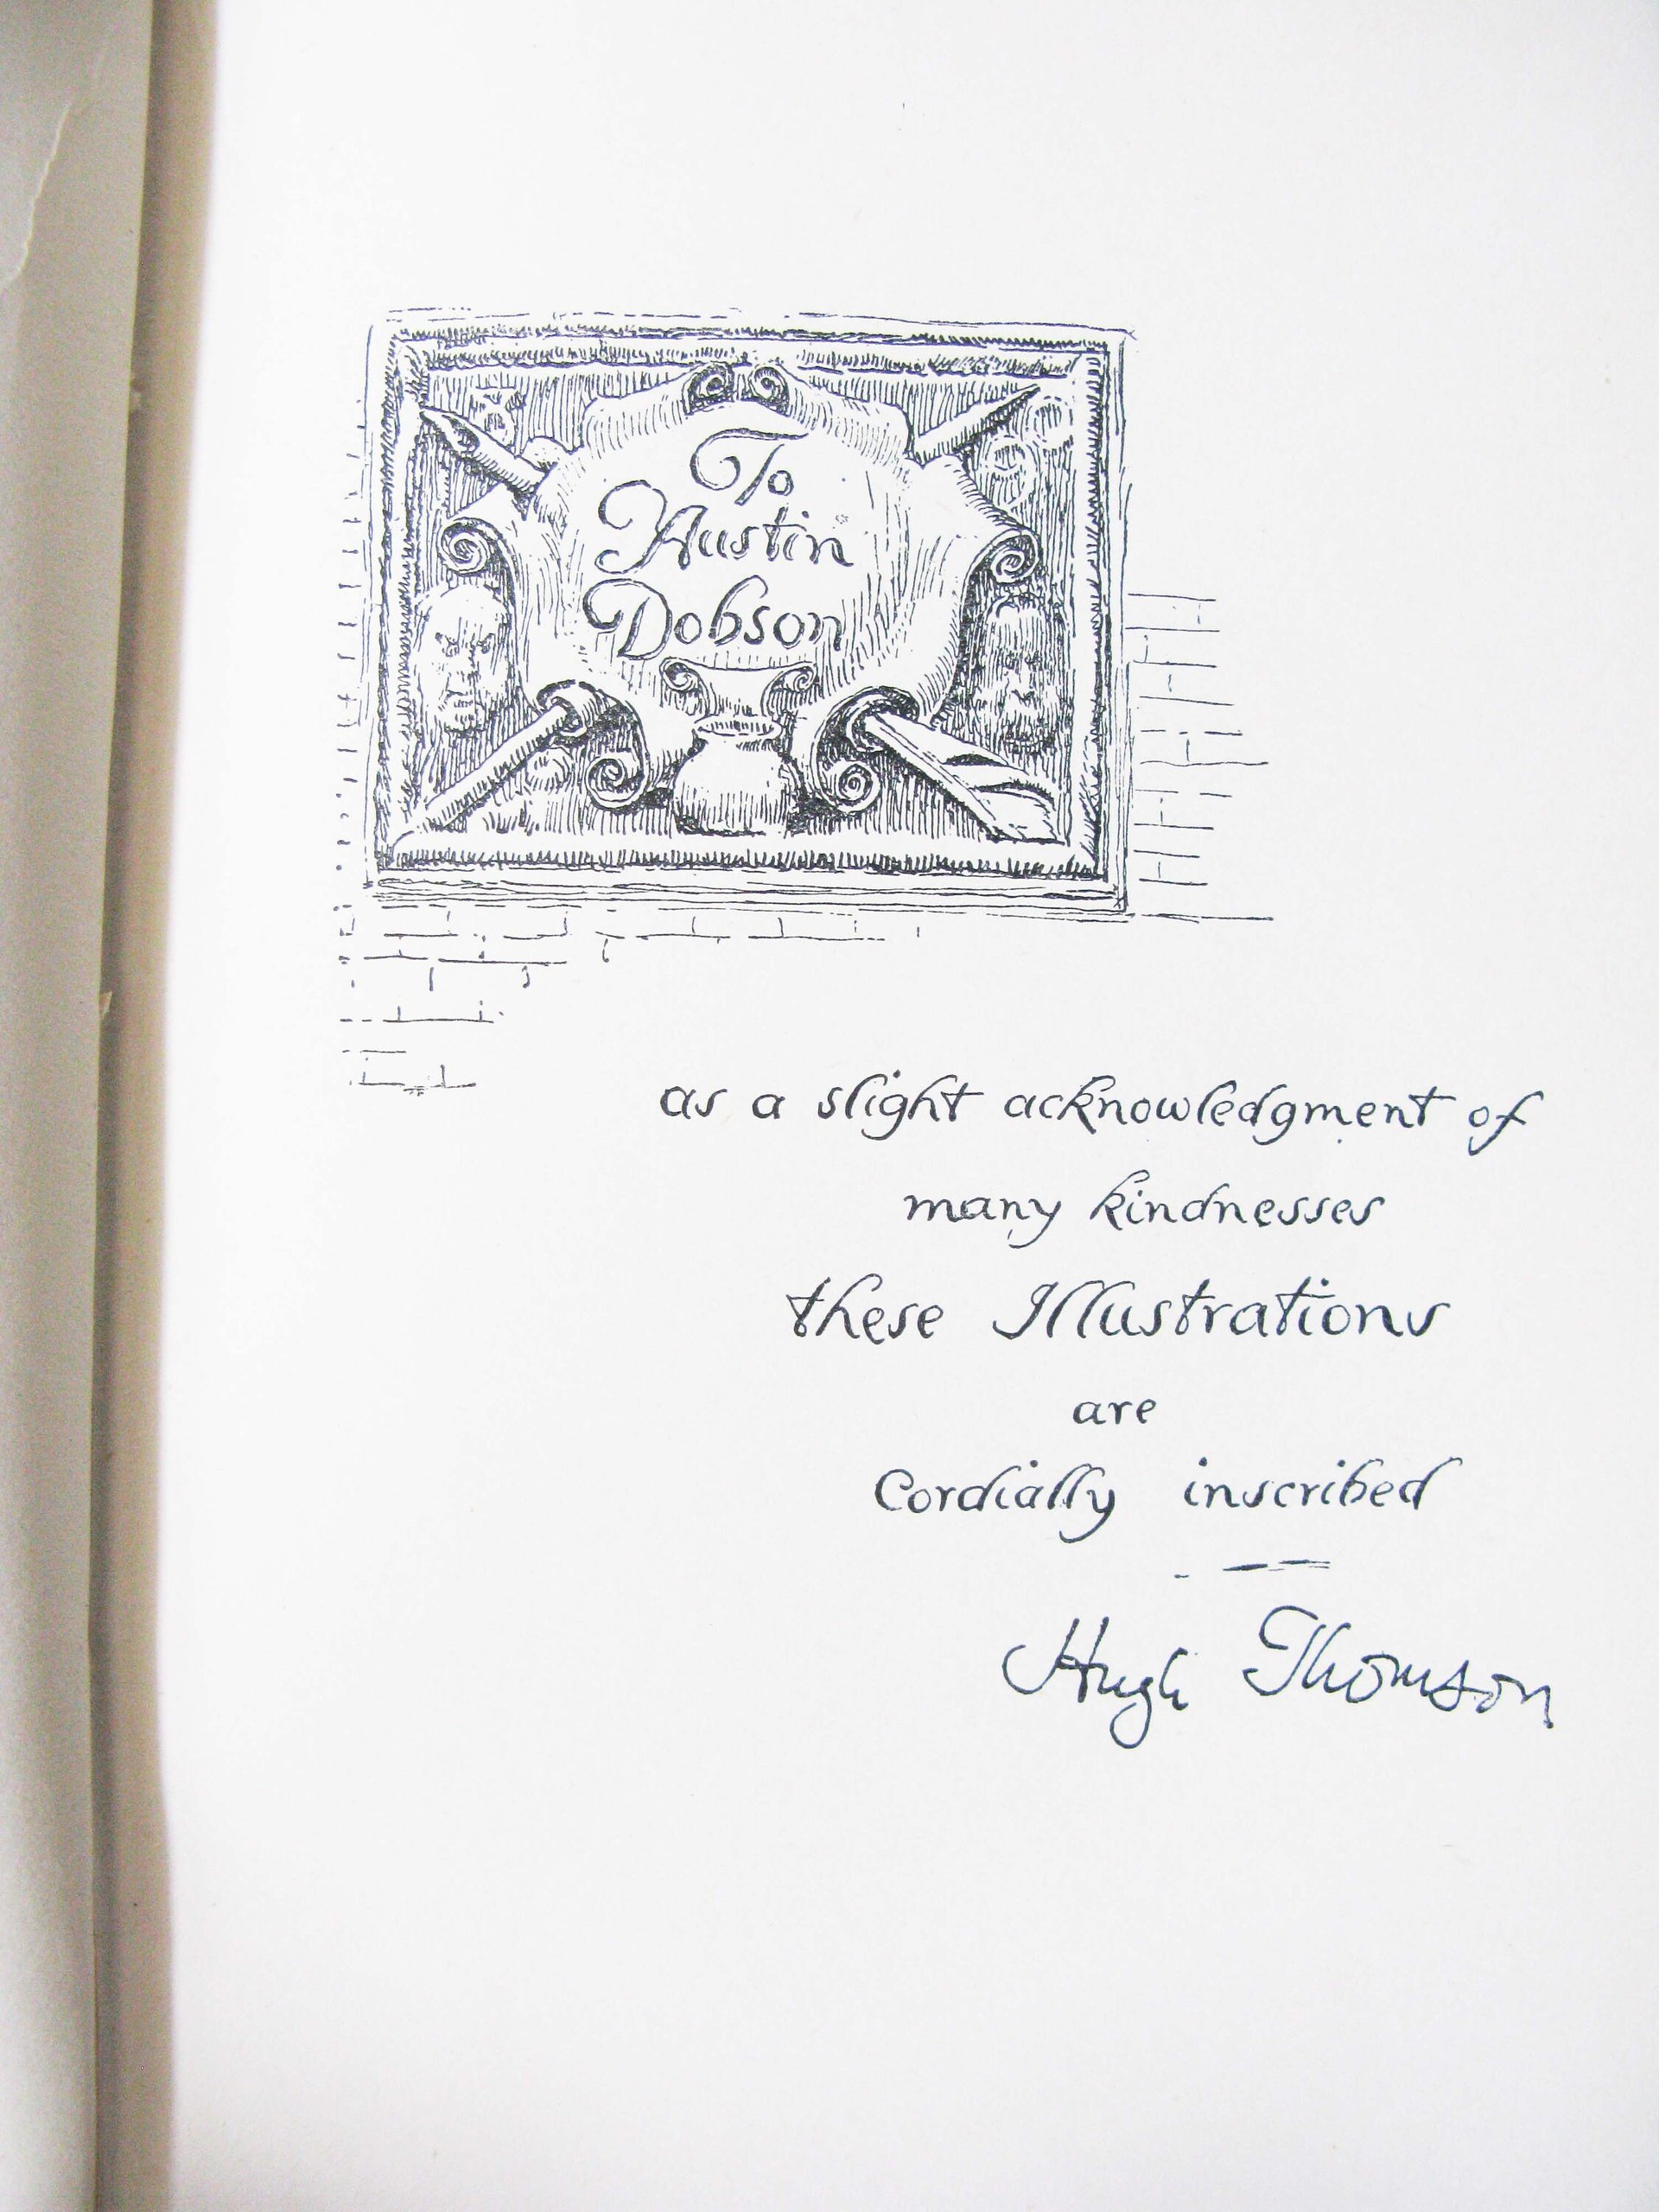 To
Austin
Dobson
as a slight acknowledgment of
many kindnesses
these Illustrations
are
Cordially inscribed
Hugh Thomson